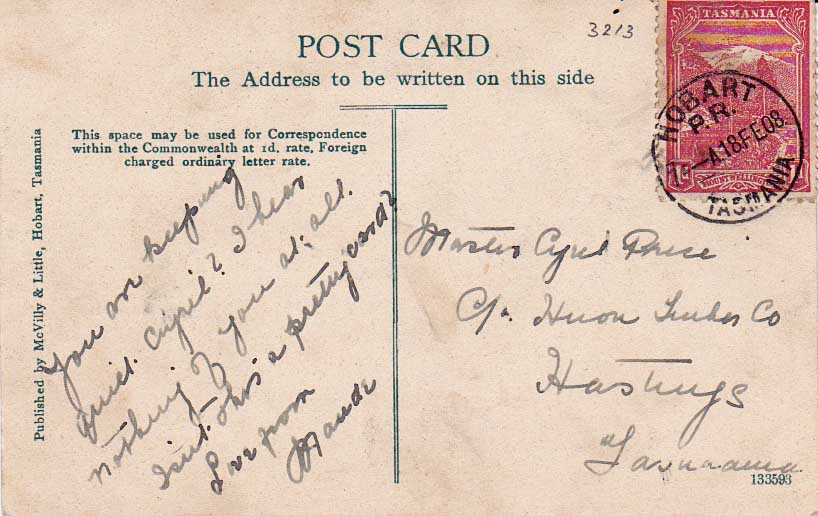 3213
POST CARD
The Address to be written on this side
TASMANIA
HOBART
P.R.
A18FE08
TASMANIA
This space may be used for Correspondence
within the Commonwealth at 1d. rate, Foreign
charged ordinary letter rate.
Published by McVilly & Little, Hobart, Tasmania
You are keeping
quiet Cyril? I hear
nothing of you at all.
Isn't this a pretty card?
Love from
Maude
Master Cyril
C/o Huon Timber Co
Hastings
Tasmania
133593